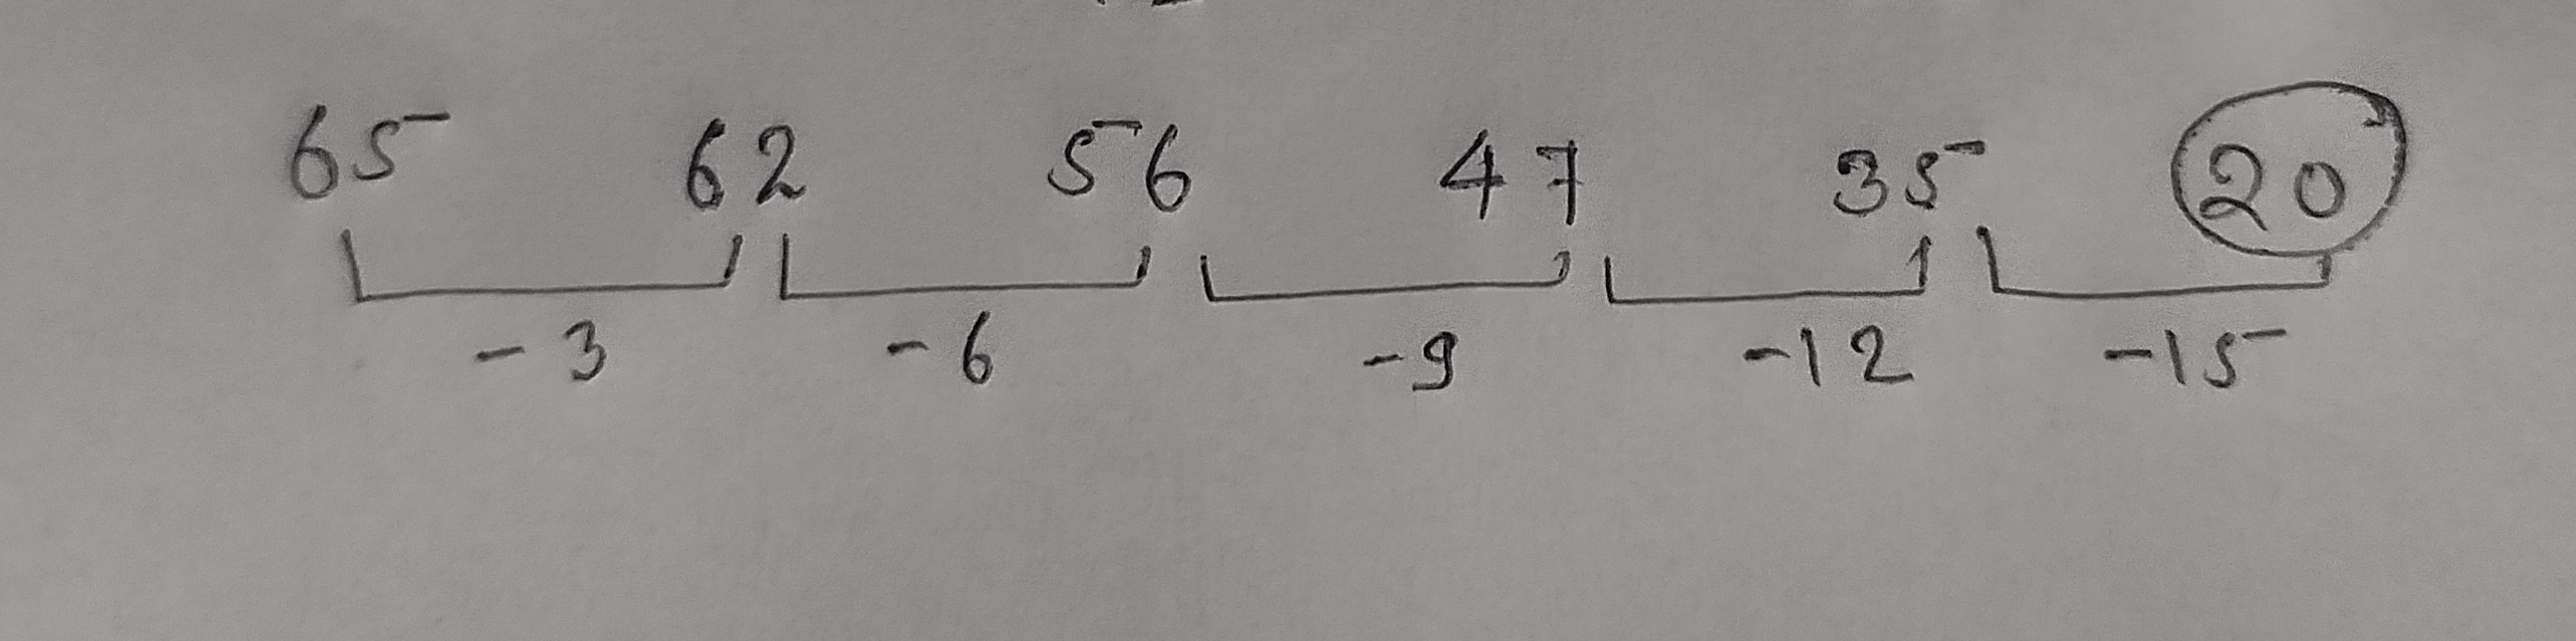 65 62 56 47 35 20
-3 -6 -9 -12 -15